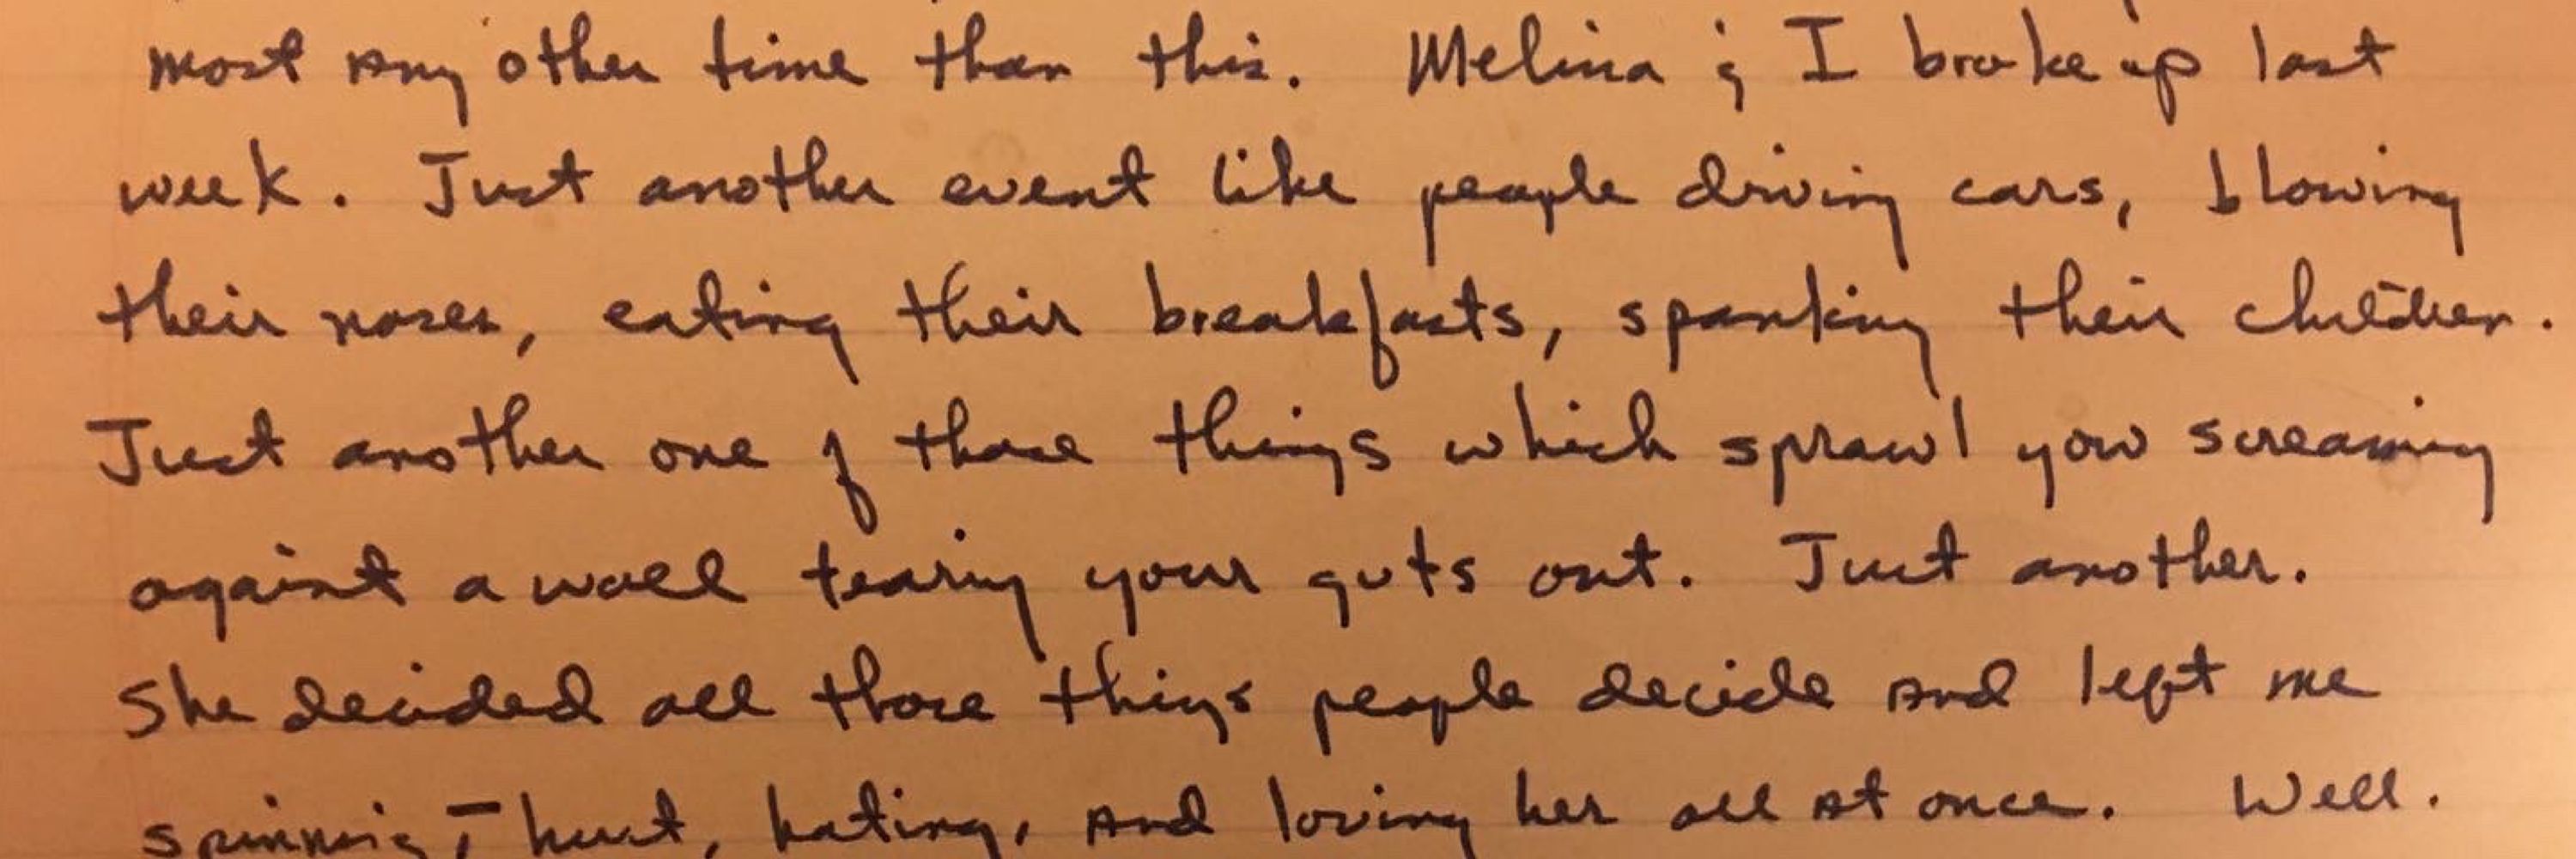 most any other time than this. Melina & I broke up last
week. Just another event like people driving cars, blowing
their noses, eating their breakfasts, spanking their children.
Just another one of those things which sprawl you screaming
against a wall tearing your guts out. Just another.
She decided all those things people decide and left me
spinning, hurt, hating, and loving her all at once. Well.